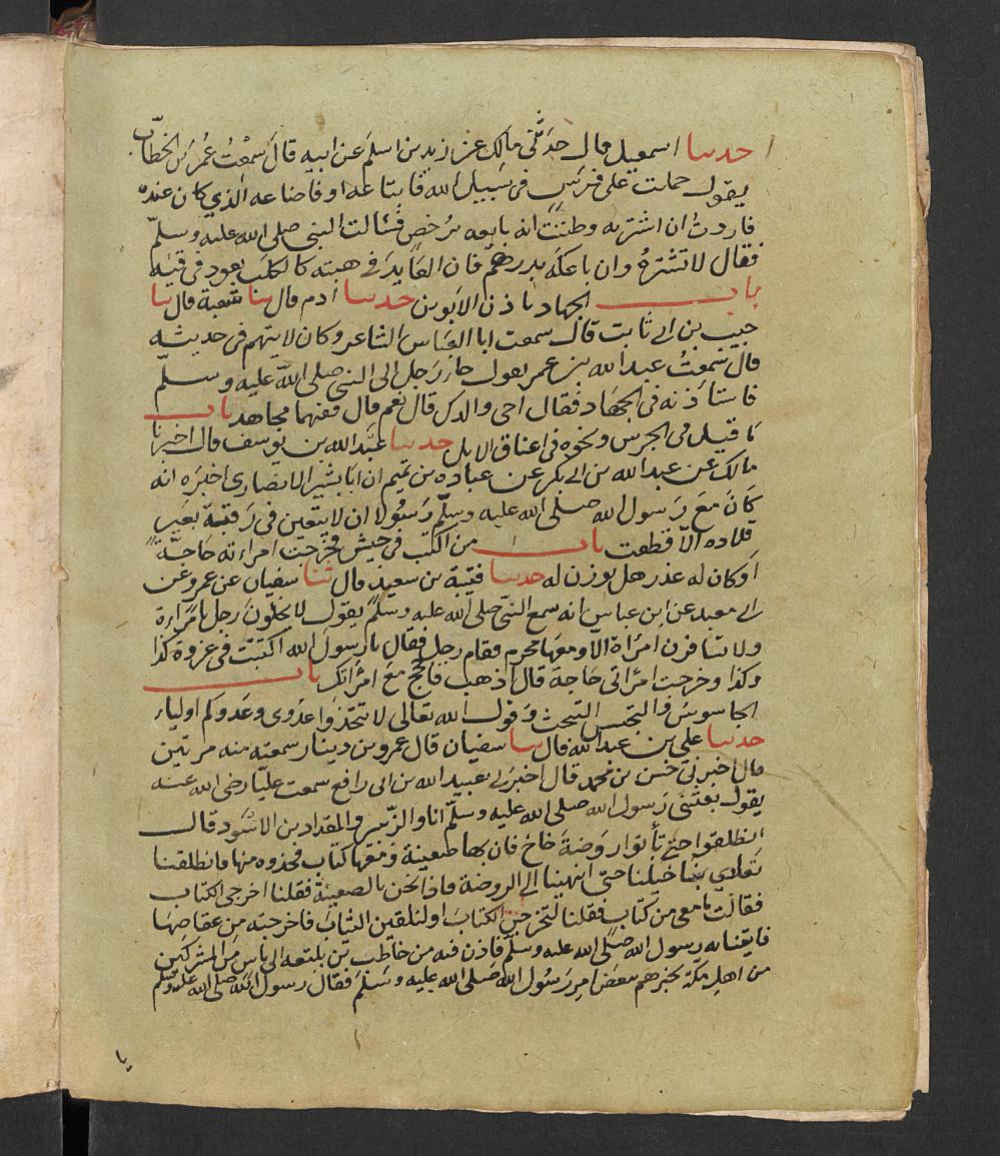 حدثنا اسمعيل قال حدثني مالك عن زيد بن اسلم عن ابيه قال سمعت عمر بن الخطاب
يقول حملت على فرس في سبيل الله فابتاعه او فاضاعه الذي كان عنده
فاردت ان اشتريه وظننت انه بايعه برخص فسالت النبي صلى الله عليه وسلم
فقال لا تشتره وان باعكه بدرهم فان العايد في هبته كالكلب يعود في قيئه
باب الجهاد باذن الابوين حدثنا ادم قال ثنا شعبة قال ثنا
حبيب بن ابي ثابت قال سمعت ابا العباس الشاعر وكان لا يتهم في حديثه
قال سمعت عبد الله بن عمر يقول جاء رجل الى النبي صلى الله عليه وسلم
فاستاذنه في الجهاد فقال احي والداك قال نعم قال ففيهما فجاهد باب
ما قيل في الجرس ونحوه في اعناق الابل حدثنا عبد الله بن يوسف قال اخبرنا
مالك عن عبد الله بن ابي بكر عن عباد بن تميم ان ابا بشير الانصاري اخبره انه
كان مع رسول الله صلى الله عليه وسلم رسولا ان لا يبقين في رقبة بعير
قلاده الا قطعت باب من اكتتب في جيش فخرجت امراته حاجة
او كان له عذر هل يوذن له حدثنا قتيبة بن سعيد قال ثنا سفيان عن عمرو عن
ابي معبد عن ابن عباس انه سمع النبي صلى الله عليه وسلم يقول لا يخلون رجل بامراءة
ولا تسافرن امراة الا ومعها محرم فقام رجل فقال يا رسول الله اكتتبت في غزوة كذا
وكذا وخرجت امراتي حاجة قال اذهب فاحجج مع امراتك باب
الجاسوس والتجسس التبحث وقول الله تعالى لا تتخذوا عدوي وعدوكم اولياء
حدثنا علي بن عبد الله قال ثنا سفيان قال عمرو بن دينار سمعته منه مرتين
قال اخبرني حسن بن محمد قال اخبرني عبيد الله بن ابي رافع سمعت عليا رضي الله عنه
يقول بعثني رسول الله صلى الله عليه وسلم انا والزبير والمقداد بن الاسود قال
انطلقوا حتى تأتوا روضة خاخ فان بها ظعينة ومعها كتاب فخذوه منها فانطلقنا
تعادي بنا خيلنا حتى انتهينا الى الروضة فاذا نحن بالضعينة فقلنا اخرجي الكتاب
فقالت ما معي من كتاب فقلنا لتخرجن الكتاب او لنلقين الثياب فاخرجته من عقاصها
فاتينا به رسول الله صلى الله عليه وسلم فاذن فيه من حاطب بن بلتعه الى ناس من المشركين
من اهل مكة يخبرهم ببعض امر رسول الله صلى الله عليه وسلم فقال رسول الله صلى الله عليه وسلم
يا